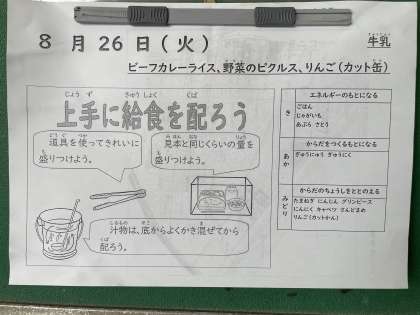 8月26日(火)
牛乳
ビーフカレーライス、野菜のピクルス、りんご(カット缶)
じょうず きゅうしょく くば
上手に給食を配ろう
どうぐ つか
道具を使ってきれいに
も
盛りつけよう。
みほん おな りょう
見本と同じくらいの量を
も
盛りつけよう。
しるもの そこ ま
汁物は、底からよくかき混ぜてから
くば
配ろう。
エネルギーのもとになる
き
ごはん
じゃがいも
あぶら さとう
からだをつくるもとになる
あか
ぎゅうにゅう ぎゅうにく
からだのちょうしをととのえる
みどり
たまねぎ にんじん グリンピース
にんにく キャベツ えんどまめ
りんご(カットかん)